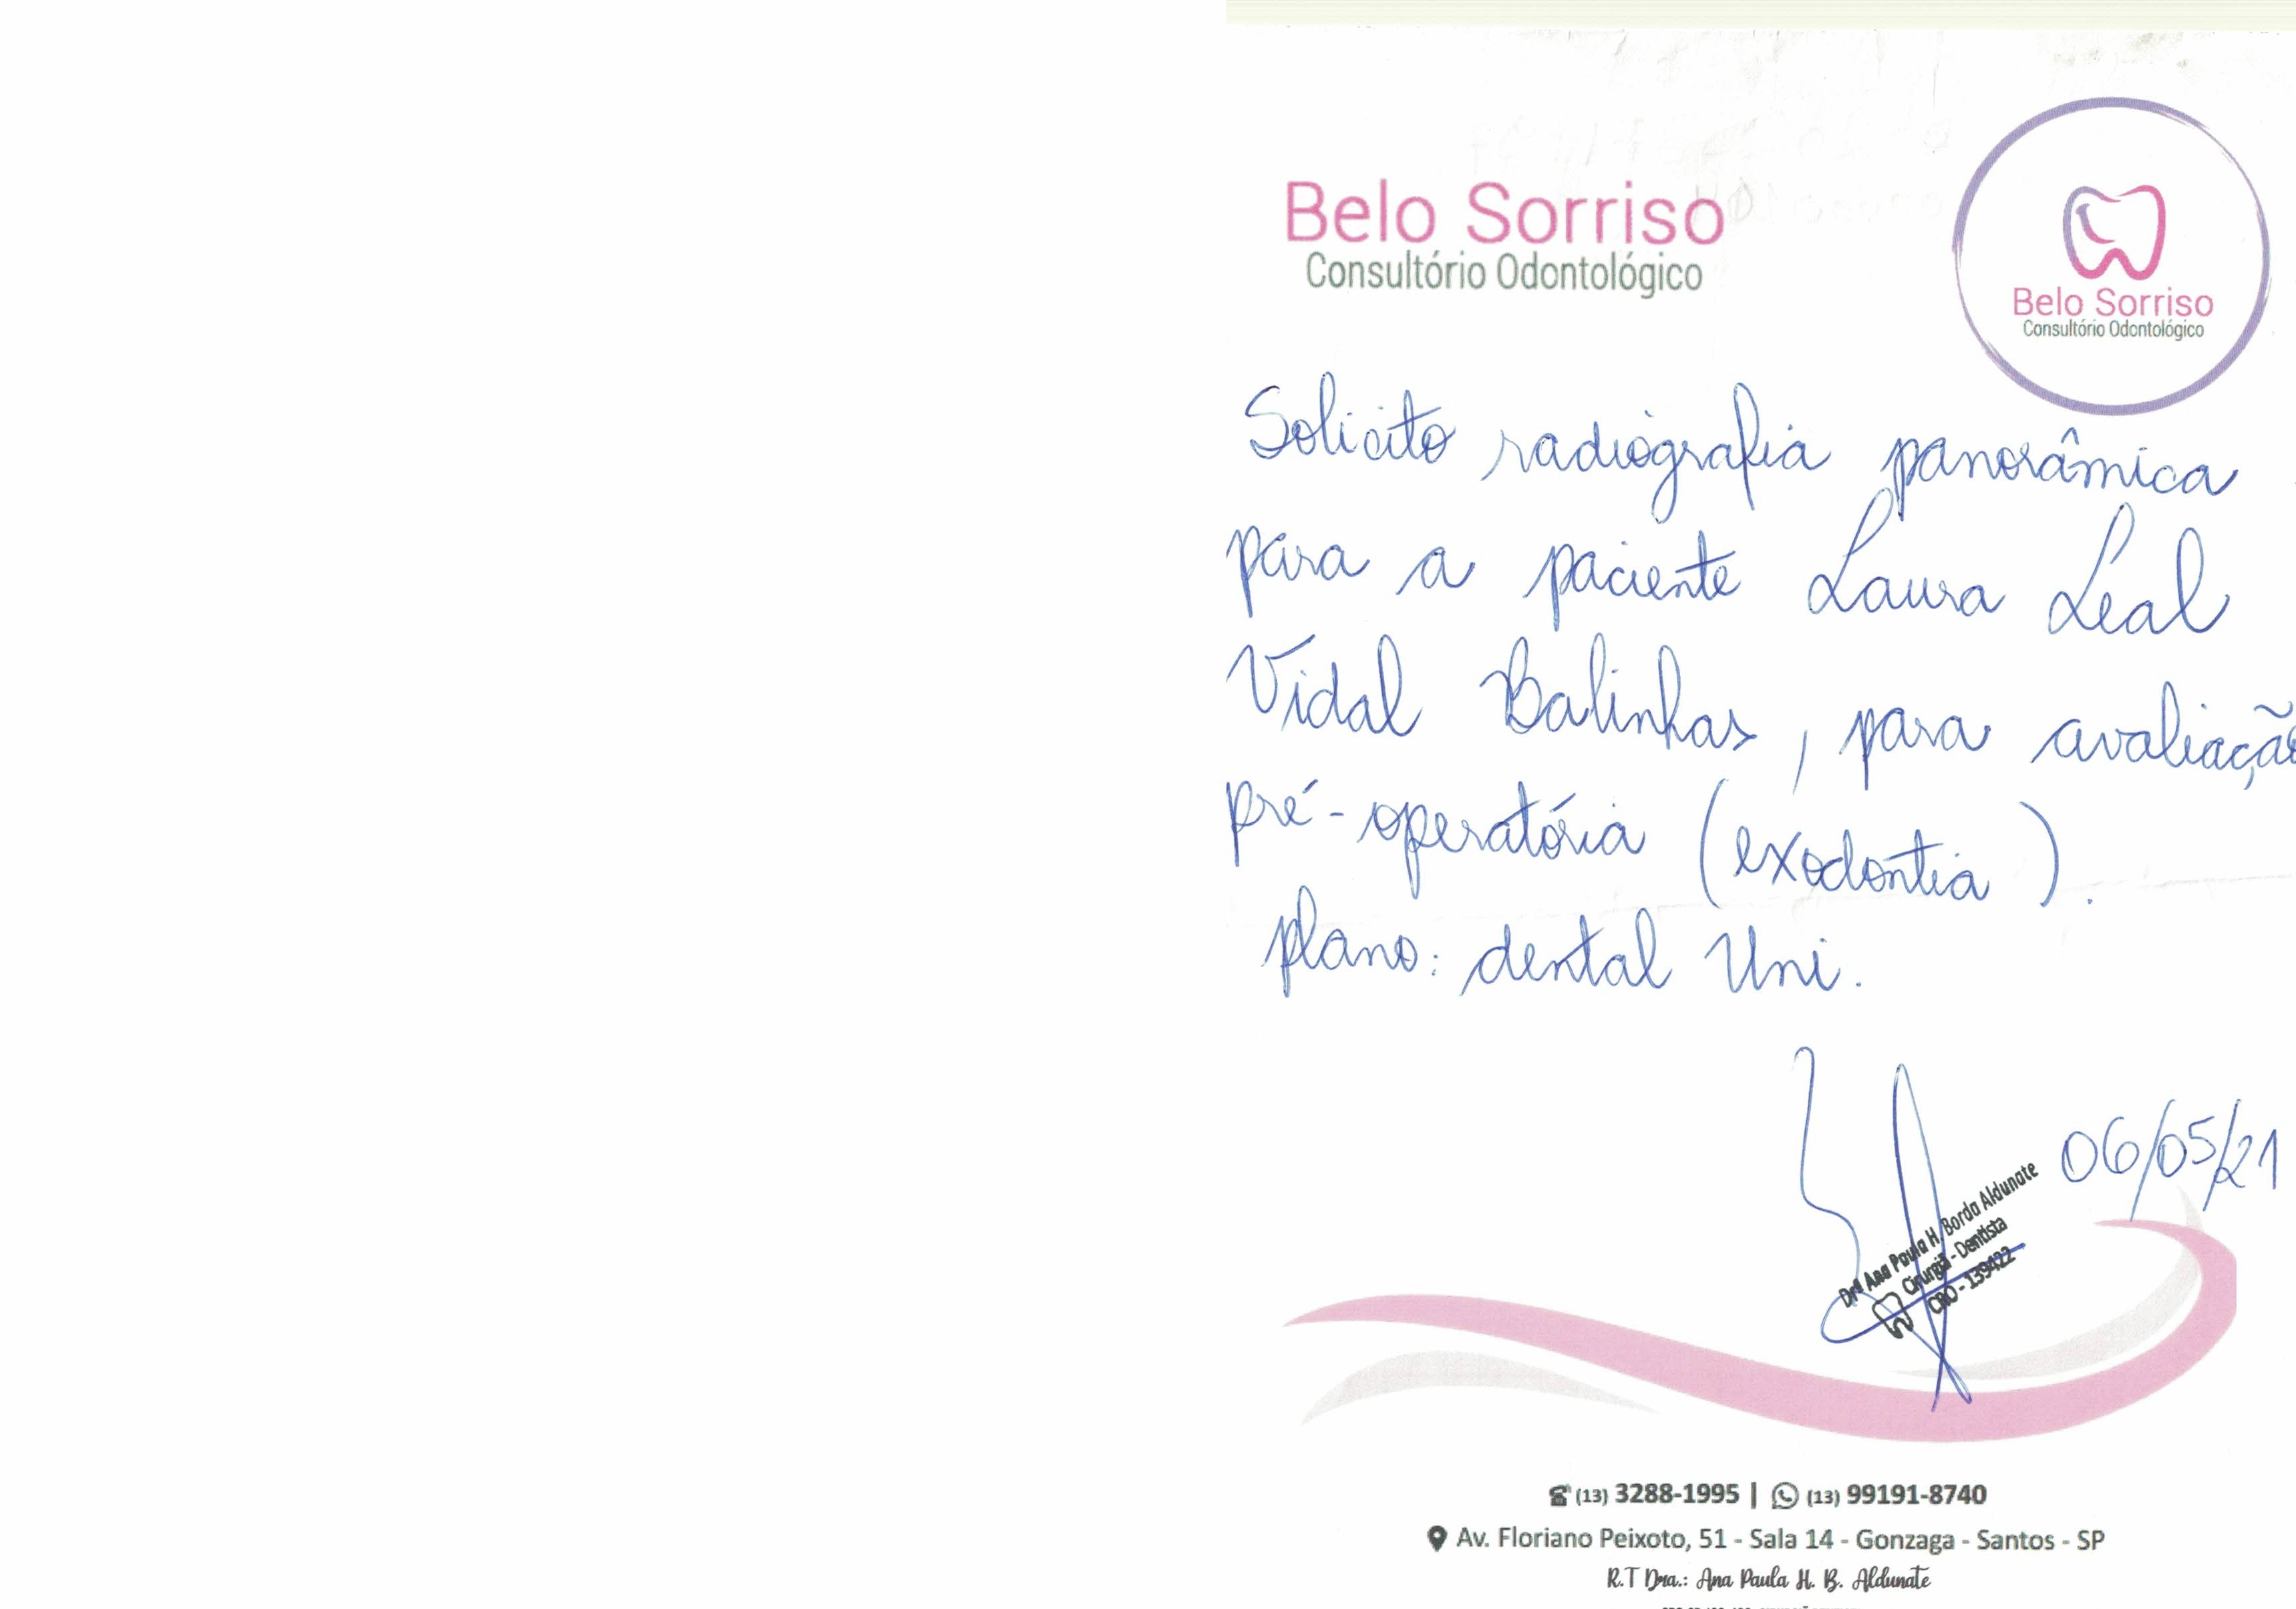 Belo Sorriso
Consultório Odontológico
Belo Sorriso
Consultório Odontológico
Solicito radiografia panorâmica
para a paciente Laura Leal
Vidal Balinhas, para avaliação
pré-operatória (exodontia).
plano: dental Uni.
06/05/21
Drª Ana Paula H. Borda Aldunate
Cirurgiã - Dentista
CRO - 139422
(13) 3288-1995 | (13) 99191-8740
Av. Floriano Peixoto, 51 - Sala 14 - Gonzaga - Santos - SP
R.T Dra.: Ana Paula H. B. Aldunate